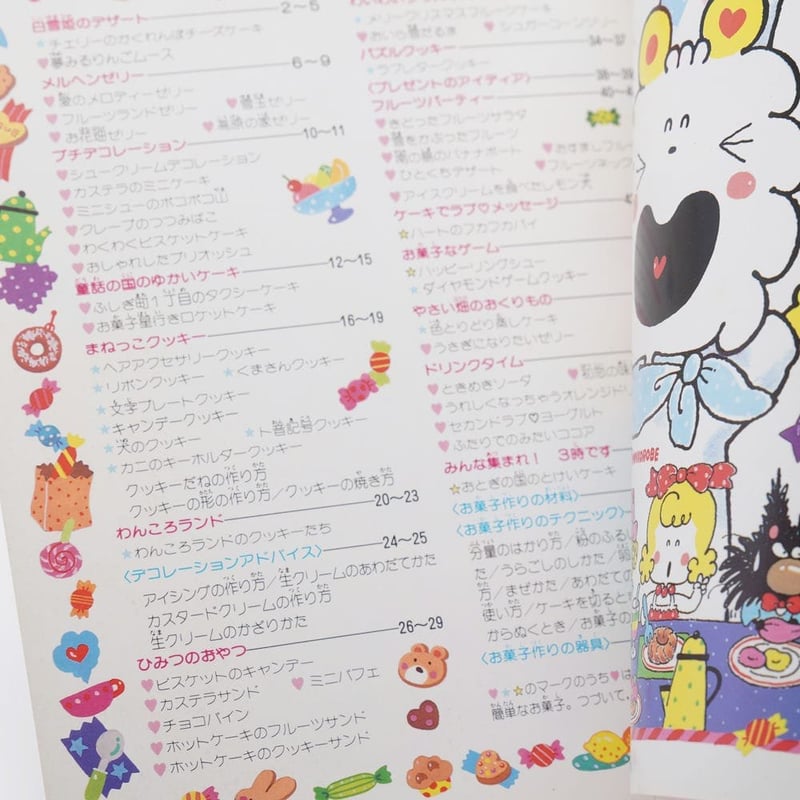 白雪姫のデザート 2〜5
★チェリーのかくれんぼチーズケーキ
♥夢みるりんごムース
メルヘンゼリー 6〜9
♥愛のメロディーゼリー
♥フルーツランドゼリー
♥お花畑ゼリー
プチデコレーション 10〜11
♥シュークリームデコレーション
♥カステラのミニケーキ
♥ミニシューのポコポコ山
♥クレープのつつみばこ
♥わくわくビスケットケーキ
♥おしゃれしたブリオッシュ
童話の国のゆかいケーキ 12〜15
♥ふしぎ町1丁目のタクシーケーキ
♥お菓子星行きロケットケーキ
まねっこクッキー 16〜19
★ヘアアクセサリークッキー
★リボンクッキー ★くまさんクッキー
★文字プレートクッキー
★キャンデークッキー
★のクッキー ★ト音記号クッキー
★カニのキーホルダークッキー
クッキーだねの作り方
クッキーの形の作り方/クッキーの焼き方
わんころランド 20〜23
★わんころランドのクッキーたち
〈デコレーションアドバイス〉 24〜25
アイシングの作り方/生クリームのあわだてかた
カスタードクリームの作り方
生クリームのかざりかた
ひみつのおやつ 26〜29
♥ビスケットのキャンデー
♥カステラサンド ♥ミニパフェ
♥チョコパイン
♥ホットケーキのフルーツサンド
♥ホットケーキのクッキーサンド
♥メリークリスマスフルーツケーキ
♥シュガーコーンツリー
パズルクッキー
★ラブレタークッキー
〈プレゼントのアイディア〉
フルーツパーティー
♥きどったフルーツサラダ
♥をかぶったフルーツ
♥のバナナボート
♥ひとくちデザート
♥アイスクリームを食べたレモン
ケーキでラブ♡メッセージ
☆ハートのフカフカパイ
お菓子なゲーム
☆ハッピーリングシュー
★ダイヤモンドゲームクッキー
やさい畑のおくりもの
★色とりどり蒸しケーキ
♥うさぎになりたいゼリー
ドリンクタイム
♥ときめきソーダ
♥うれしくなっちゃうオレンジ
♥セカンドラブ♡ヨーグルト
♥ふたりでのみたいココア
みんな集まれ! 3時です
☆おとぎの国のとけいケーキ
〈お菓子作りの材料〉
〈お菓子作りのテクニック〉
分量のはかり方/粉のふる
た/うらごしのしかた/
方/まぜかた/あわだての
使い方/ケーキを切ると
からぬくとき/お菓子の
〈お菓子作りの器具〉
♥★☆のマークのうち♥は
簡単なお菓子。つづいて、